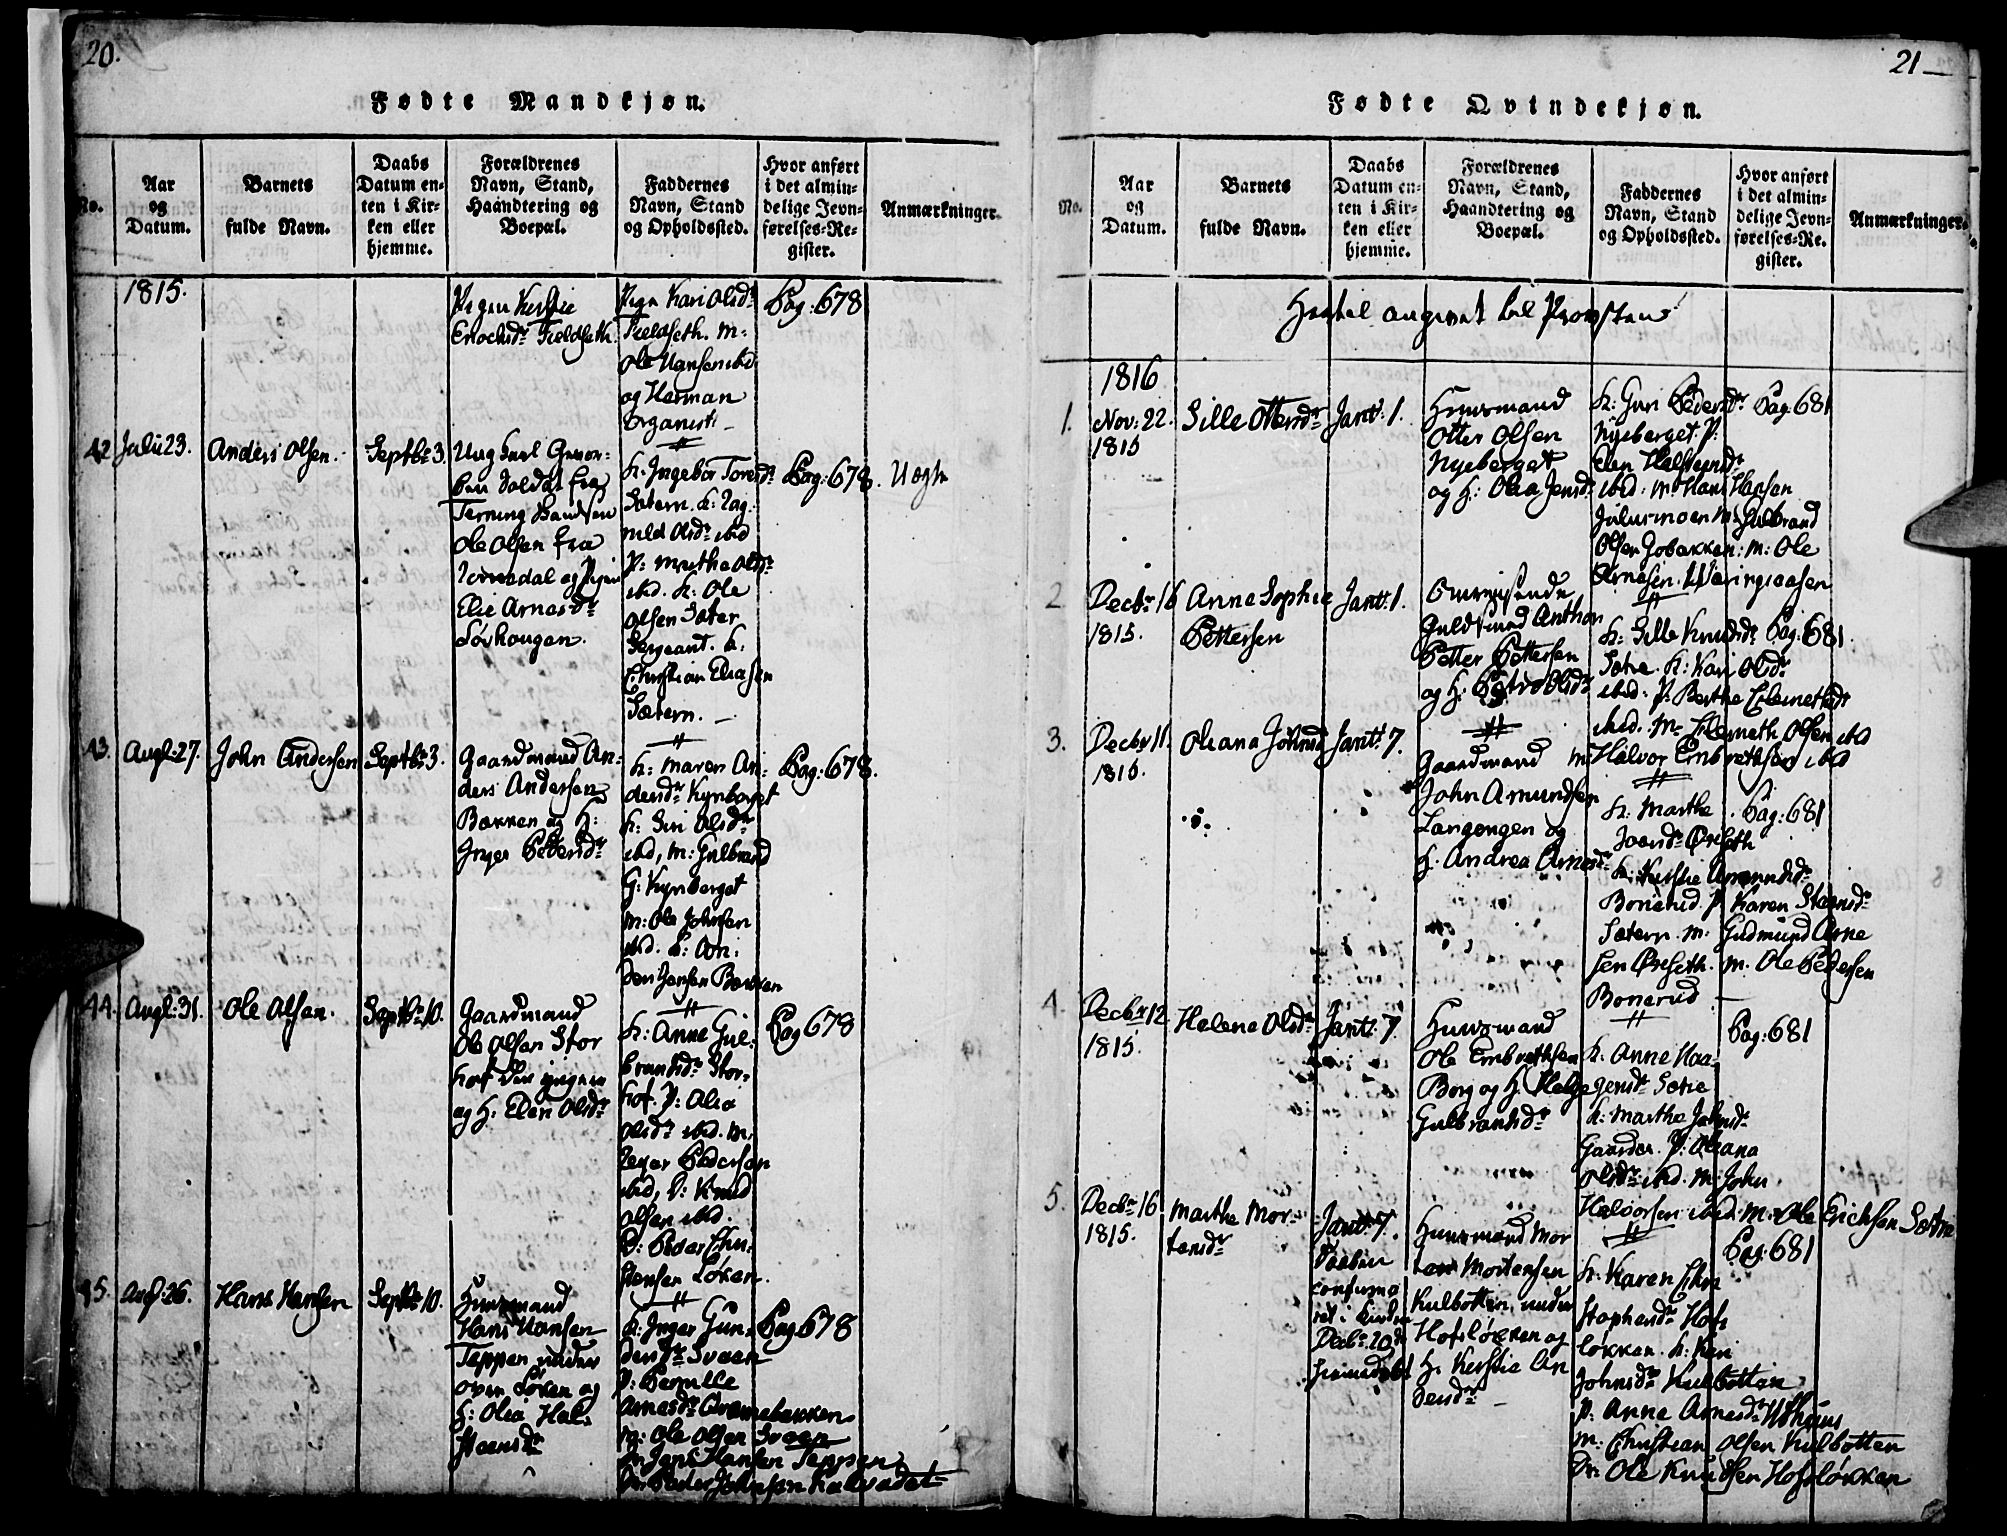 20.
Fødte Mandkjøn.
No.
Aar
og
Datum.
Barnets
fulde Navn.
Daabs
Datum en-
ten i Kir-
ken eller
hjemme.
Forældrenes
Navn, Stand,
Haandtering og
Boepæl.
Faddernes
Navn, Stand
og Opholdssted.
Hvor anført
i det almin-
delige Jevn-
førelses-Re-
gister.
Anmærkninger.
1815.
Pigen Kerstie
Enochsdr
Pign Kari Olsdr
m:
Ole Hansen ibid
og Herman
Organist
Pag: 678
42
Julii 23.
Anders Olsen.
Septbr 3.
Ung Karl
Soldat fra
Terning
Ole Olsen fra
og Pigen
Elie Arnesdr
Løvhougen.
k. Ingebor Toresdr
Sætern. k:
Olsdr ibid
P: Marthe Olsdr
ibid. k: Ole
Olsen Sæter
Sergeant. k:
Christian Eliasen
Sætern.
Pag: 678.
Uægte
43.
Augl: 27.
John Andersen
Septbr 3.
Gaardmand An-
ders Andersen
Bakken og H:
Inger Pedersdr
k: Maren An-
dersdr Kynberget
k: Siri Olsdr
ibid, m: Gulbrand
G: Kynberget
m: Ole Johnsen
ibid.
Jensen Bakken
Pag: 678.
44.
Augl: 31.
Ole Olsen.
Septbr 10.
Gaardmand
Ole Olsen Stor
hof den yngere
og H. Elen Olsdr
k: Anne Gul-
brandsdr Stor-
hof. P: Olia
Olsdr ibid. m.
Peder Pedersen
ibid, k: Knud
Olsen ibid.
Peder Chri-
stensen Løken.
Pag 678
45.
Augl: 26.
Hans Hansen
Septbr 10.
Huusmand
Hans Hansen
Teppen under
øvre Løken og
H: Olia Hal-
steensdr
k: Inger Gun-
dersdr Sveen
P: Pernille
Arnesdr Grønnebakken
m: Ole Olsen Sveen
m: Jens Hansen Teppen
Peder Johnsen Kalvadet
Pag 678
21
Fødte Qvindekjøn.
No.
Aar
og
Datum.
Barnets
fulde Navn.
Daabs
Datum en-
ten i Kir-
ken eller
hjemme.
Forældrenes
Navn, Stand,
Haandtering og
Boepæl.
Faddernes
Navn, Stand
og Opholdssted.
Hvor anført
i det almin-
delige Jevn-
førelses-Re-
gister.
Anmærkninger.
Hertil angivet til Provsten
1816
1.
Nov: 22.
1815
Sille Ottersdr
Jan: 1.
Huusmand
Otter Olsen
Nyeberget
og H: Olea Jensdr
k: Guri Pedersdr
Nyeberget. P:
Elen Halstensdr
ibid. m: Hans Hansen
Julusmoen m: Gulbrand
Olsen Jobakken: m: Ole
Arnesen
Pag: 681
2
Decbr 16
1815.
Anne Sophie
Pettersen
Jan: 1.
Guldsmed Anthon
Petter Pettersen
og H. Olsdr
k: Sille Knudsdr
Sætre. k: Kari Olsdr
ibid. P: Berthe Clemetsdr
ibid. m: Clemeth Olsen ibid
m: Halvor Embrethsen ibid
Pag: 681.
3.
Decbr 11.
1815.
Oleana Johnsd
Jan: 7.
Gaardmand
John Amundsen
Langengen og
H. Andrea Arnesdr
k: Marthe
Øvrseth
k: Kerstie Amundsdr
Bonerud. P Karen Steensdr
Sætern. m: Gudmund Arne
sen Øvrseth. m. Ole Pedersen
Bonerud
Pag: 681
4.
Decbr 12
1815.
Helene Olsdr
Jan: 7.
Huusmand
Ole Embrethsen
Borg og H. Helge
Gulbrandsdr
k: Anne Haa-
gensdr Sætre
k: Marthe Johnsdr
Gaarder. P: Oleana
Olsdr ibid. m: John
Halvorsen ibid. m: Ole Erichsen Sætre
Pag: 681
5.
Decbr 16
1815.
Marthe Mor-
tensdr
Jan: 7.
Daaben
confirme
ret i Kirken
Decbr 20de
hjemmedøbt
Huusmand Mor
ten Mortensen
Kulbotten under
Hofsløkken og
H. Kerstie An
dersdr
k: Karen Chri
stophersdr Hofs
løkken. k: Kari
Johnsdr Kulbotten
P: Anne Arnesdr Uthuus
m: Christian Olsen Kulbotten
m: Ole Knudsen Hofsløkken
Pag: 681